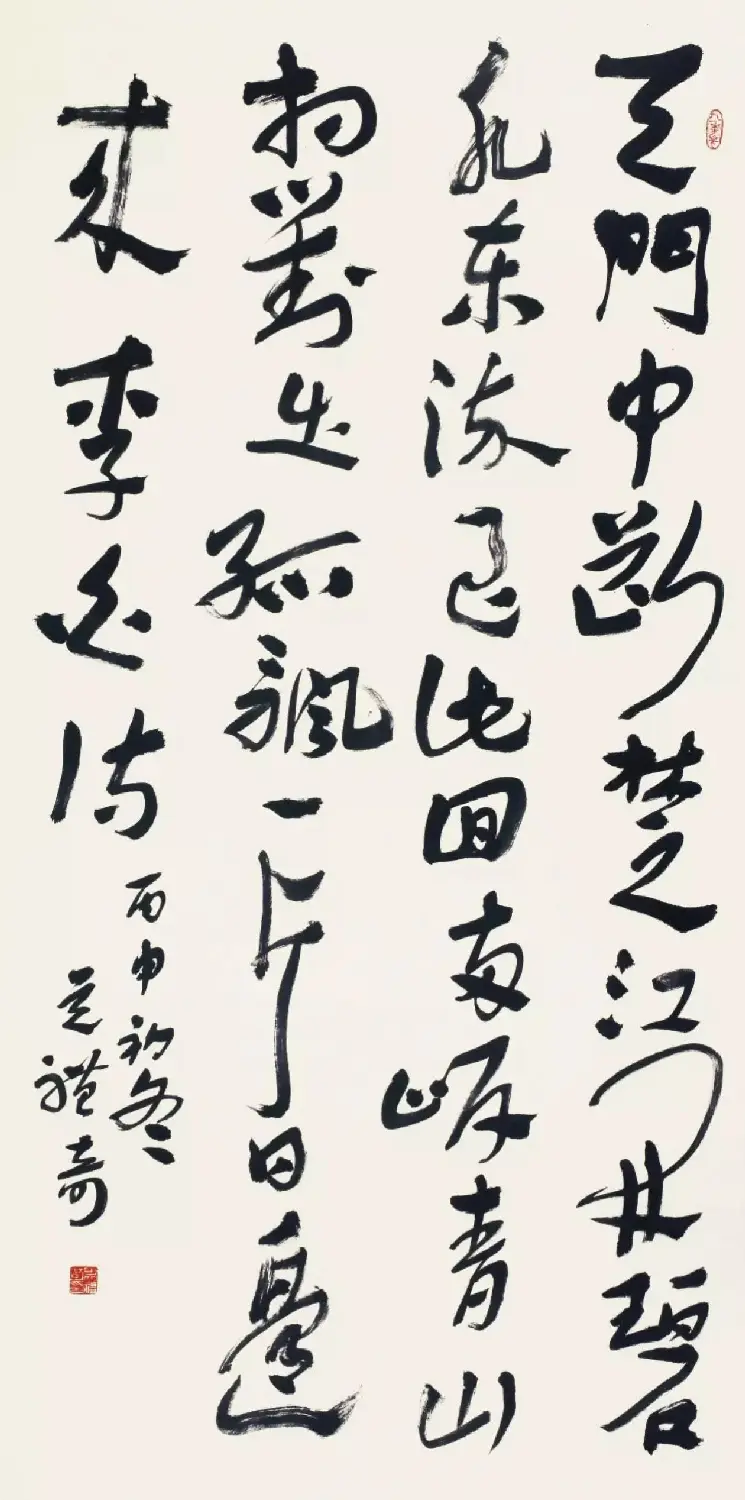 天門中斷楚江開碧
水東流此回兩岸青山
相對出孤帆一片日邊
來 李白詩 丙申初冬
禮奇